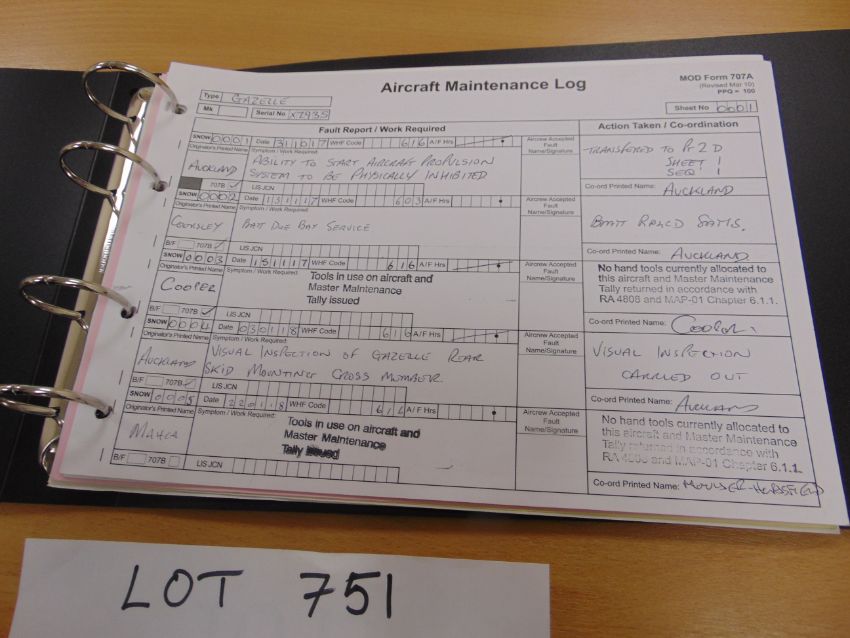 Aircraft Maintenance Log
MOD Form 707A
(Revised Mar 10)
PPQ = 100
Type GAZELLE
Mk
Serial No XZ935
Sheet No 0001
Fault Report / Work Required
Action Taken / Co-ordination
SNOW 0001 Date 311017 WHF Code 616 A/F Hrs
Originator's Printed Name
Symptom / Work Required:
Aircrew Accepted
Fault
Name/Signature
AUCKLAND
ABILITY TO START AIRCRAFT PROPULSION
SYSTEM TO BE PHYSICALLY INHIBITED
TRANSFERED TO Pt 2 D
SHEET 1
SEQ' 1
707B ✓ LIS JCN
Co-ord Printed Name: AUCKLAND
SNOW 0002 Date 131117 WHF Code 603 A/F Hrs
Originator's Printed Name
Symptom / Work Required:
Aircrew Accepted
Fault
Name/Signature
BATT DUE BAY SERVICE
BATT SATIS.
B/F 707B ✓ LIS JCN
Co-ord Printed Name: AUCKLAND
SNOW 0003 Date 151117 WHF Code 616 A/F Hrs
Originator's Printed Name
Symptom / Work Required:
Aircrew Accepted
Fault
Name/Signature
COOPER
Tools in use on aircraft and
Master Maintenance
Tally issued
No hand tools currently allocated to
this aircraft and Master Maintenance
Tally returned in accordance with
RA 4808 and MAP-01 Chapter 6.1.1.
B/F 707B ✓ LIS JCN
Co-ord Printed Name: COOPER
SNOW 0004 Date 030118 WHF Code 616 A/F Hrs
Originator's Printed Name
Symptom / Work Required:
Aircrew Accepted
Fault
Name/Signature
AUCKLAND
VISUAL INSPECTION OF GAZELLE REAR
SKID MOUNTING CROSS MEMBER
VISUAL INSPECTION
CARRIED OUT
B/F 707B ✓ LIS JCN
Co-ord Printed Name: AUCKLAND
SNOW 0005 Date 220118 WHF Code A/F Hrs
Originator's Printed Name
Symptom / Work Required:
Aircrew Accepted
Fault
Name/Signature
Tools in use on aircraft and
Master Maintenance
Tally issued
No hand tools currently allocated to
this aircraft and Master Maintenance
Tally returned in accordance with
RA 4808 and MAP-01 Chapter 6.1.1.
B/F 707B LIS JCN
Co-ord Printed Name:
LOT 751